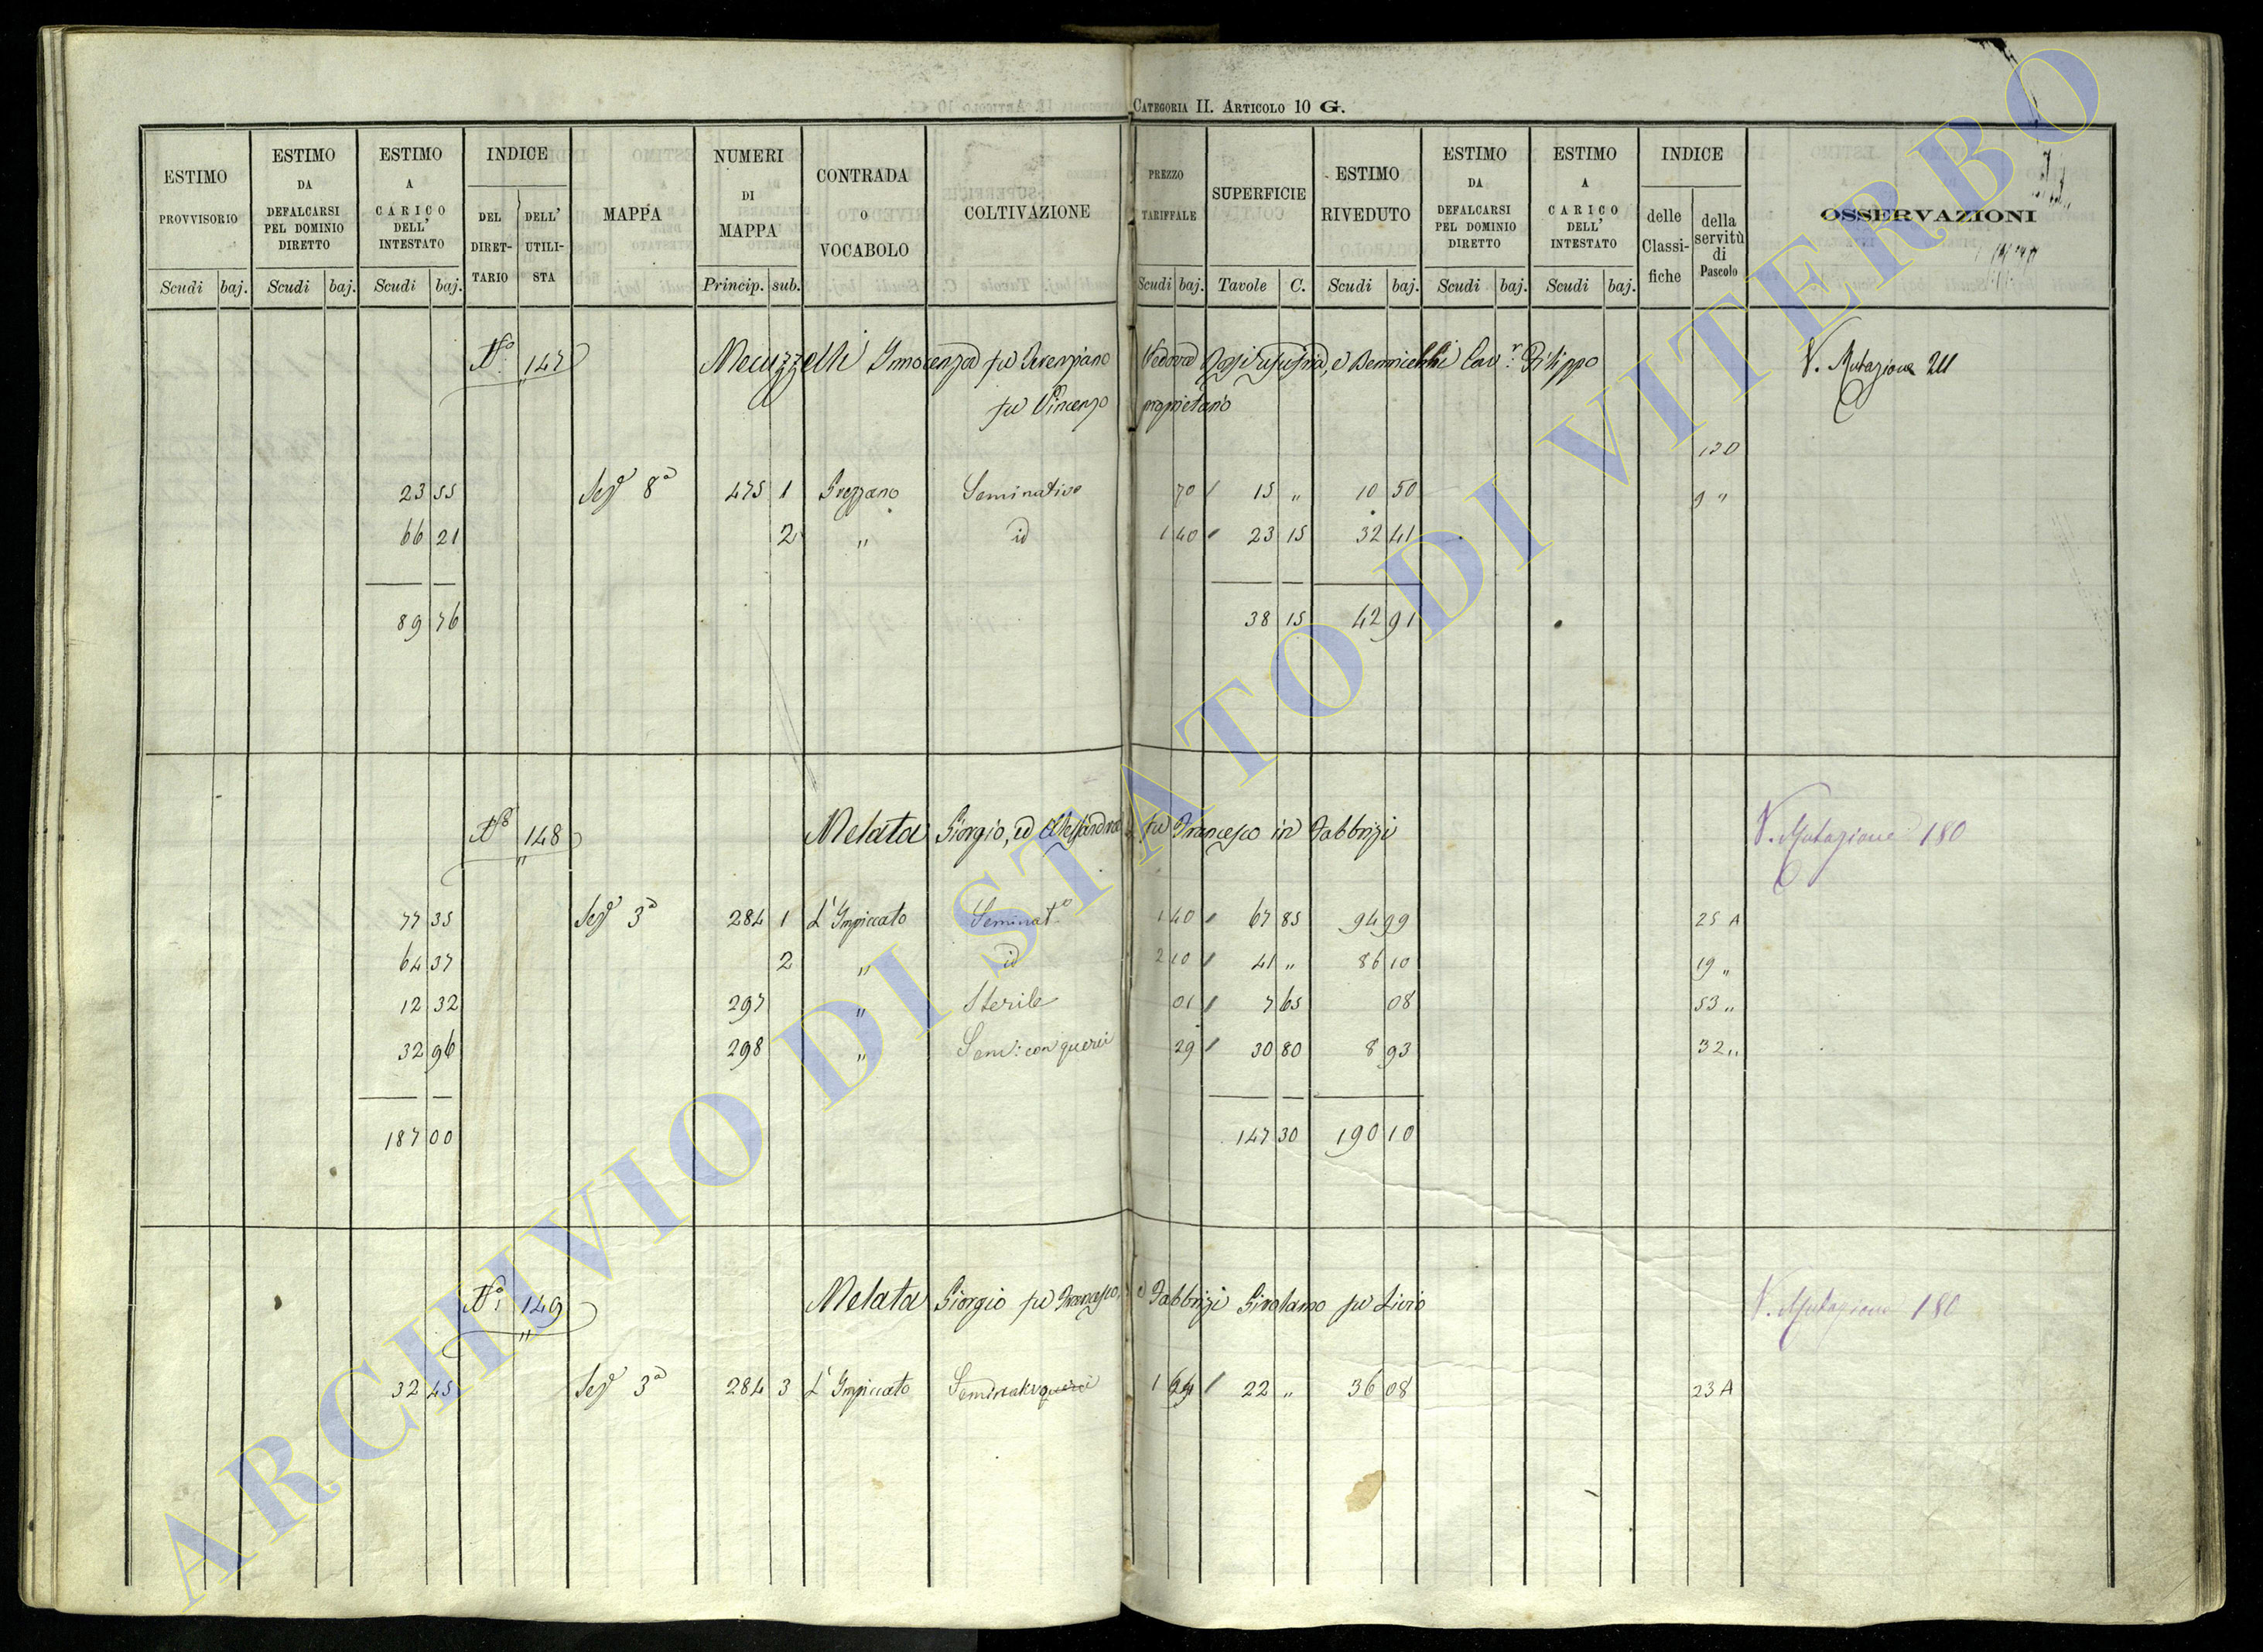 CATEGORIA II. ARTICOLO 10 G.
ESTIMO PROVVISORIO Scudi baj. ESTIMO DA DEFALCARSI PEL DOMINIO DIRETTO Scudi baj. ESTIMO A CARICO DELL' INTESTATO Scudi baj. INDICE DEL DIRETTARIO DELL' UTILISTA MAPPA NUMERI DI MAPPA Princip. sub. CONTRADA O VOCABOLO COLTIVAZIONE PREZZO TARIFFALE Scudi baj. SUPERFICIE Tavole C. ESTIMO RIVEDUTO Scudi baj. ESTIMO DA DEFALCARSI PEL DOMINIO DIRETTO Scudi baj. ESTIMO A CARICO DELL' INTESTATO Scudi baj. INDICE delle Classifiche della servitù di Pascolo OSSERVAZIONI
N.° 147 Mecuzzelli Innocenza fu Vedova e Cav.r Filippo V. Mutazione 211
fu Vincenzo proprietario
130
23 55 Sez.e 8a 475 1 Seminativo 70 15 " 10 50 9 "
66 21 2 " id 1 40 23 15 32 41
89 76 38 15 42 91
N.° 148 Melata Giorgio, ed Alessandra fu Francesco in Fabbrizi V. Mutazione 180
77 35 Sez.e 3a 284 1 L'Impiccato Seminat.o 1 40 67 85 94 99 25 A
64 37 2 " id 2 10 41 " 86 10 19 "
12 32 297 " Sterile 01 7 65 08 53 "
32 96 298 " Sem: con querci 29 30 80 8 93 32 "
187 00 147 30 190 10
N.° 149 Melata Giorgio fu Francesco, e Fabbrizi Girolamo fu Livio V. Mutazione 180
32 45 Sez.e 3a 284 3 L'Impiccato 1 64 22 " 36 08 23 A
ARCHIVIO DI STATO DI VITERBO